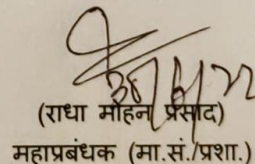 (राधा मोहन प्रसाद)
महाप्रबंधक (मा.सं./प्रशा.)